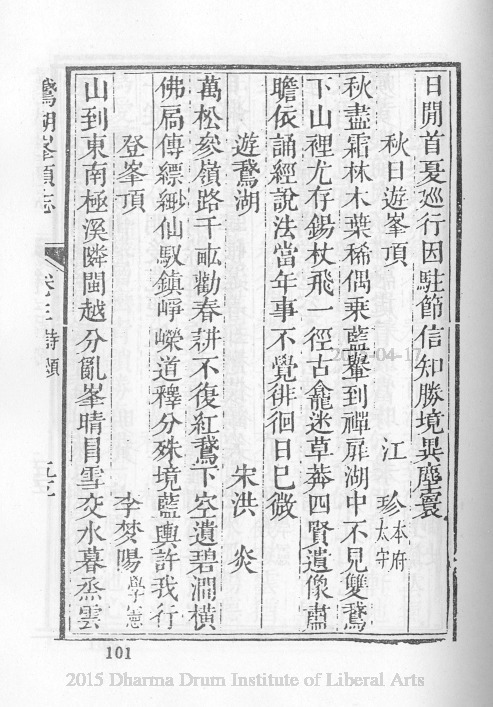 日閒首夏廵行因駐節信知勝境異塵寰
秋日遊峯頂 江珍 本府太守
秋盡霜林木葉稀偶乘藍轝到禪扉湖中不見雙鵞
下山裡尤存錫杖飛一徑古龕迷草莽四賢遺像肅
瞻依誦經說法當年事不覺徘徊日已微
遊鵞湖 宋洪炎
萬松參嶺路千畝勸春耕不復紅鵞下空遺碧澗橫
佛扃傳縹緲仙馭鎮崢嶸道釋分殊境藍輿許我行
登峯頂 李夢陽 學憲
山到東南極溪隣閩越分亂峯晴冐雪交水暮烝雲
鵞湖峯頂志 卷三 詩頌
101
2015-04-17
2015 Dharma Drum Institute of Liberal Arts